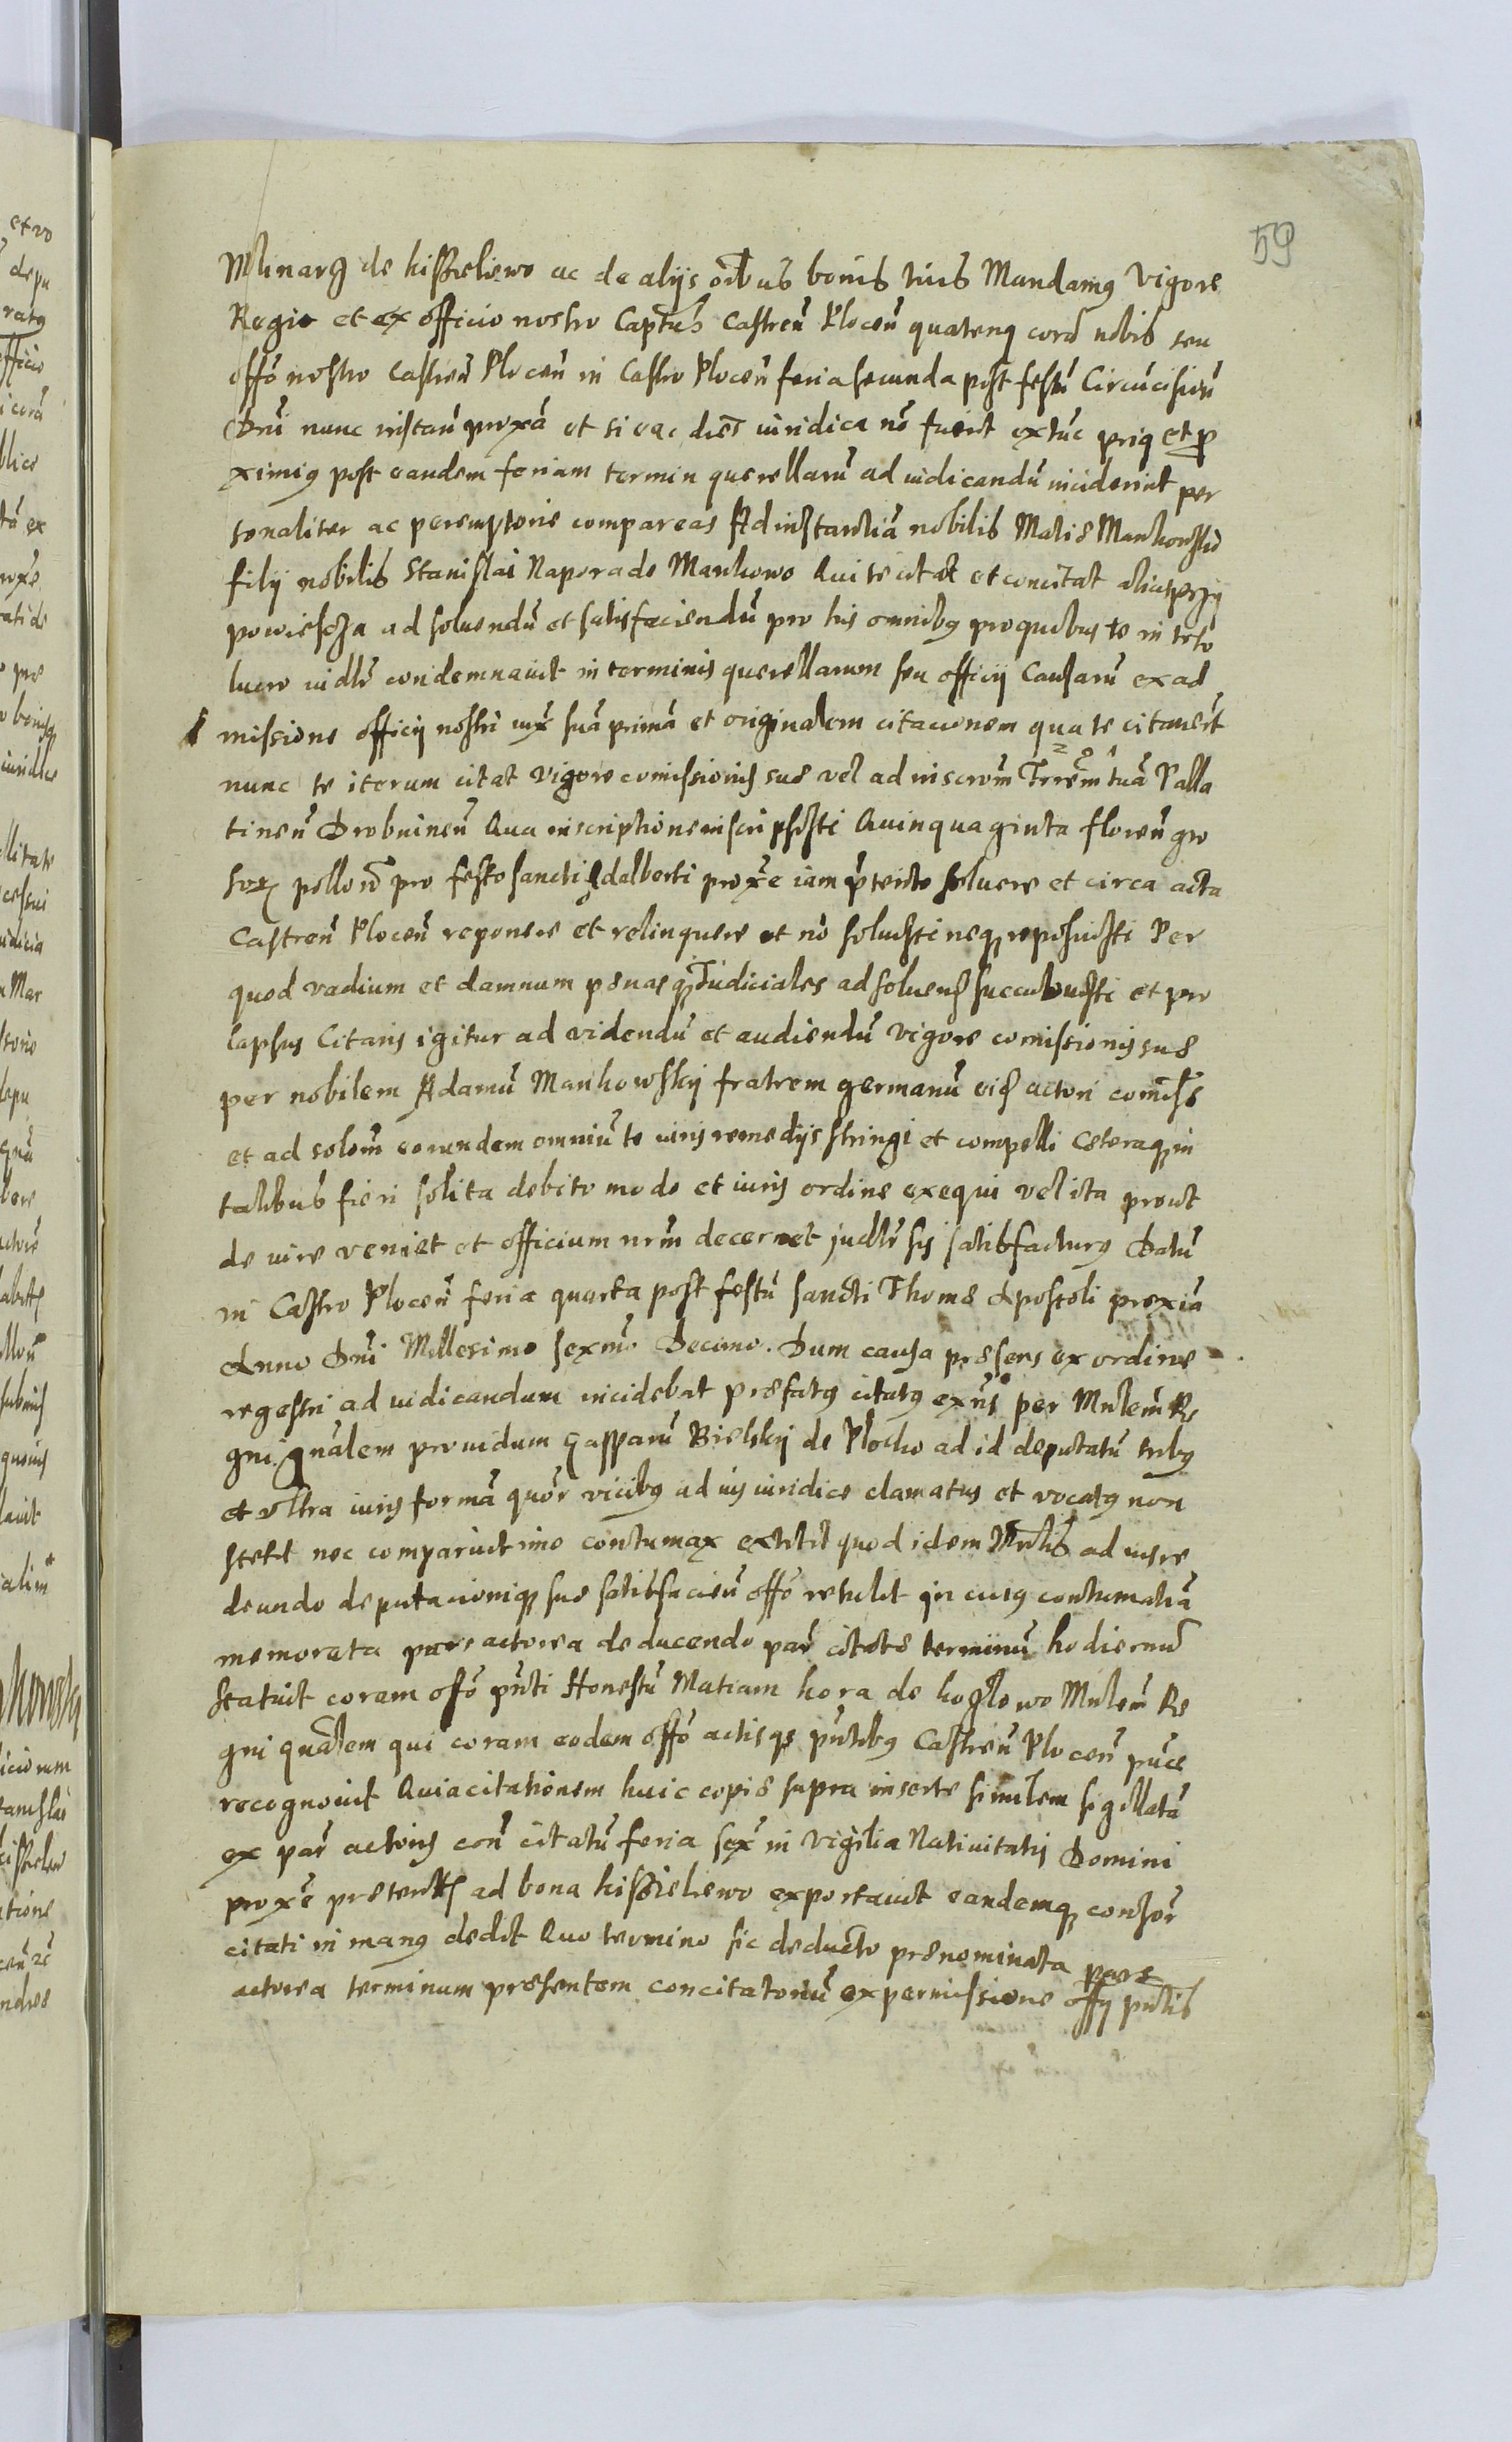 59
Mlinarz de Kisselewo ac de alijs oībus bonis tuis Mandamus Vigore
Regio et ex officio nostro Capītis Castreñ Ploceñ quatenus corā nobis seu
offō nostro Castreñ Ploceñ in Castro Ploceñ feria secunda post festū Circūcisioñ
Dnī nunc instañ proxā et si eac dies iuridica nō fuerit extūc prius et pro
ximius post eandem feriam termin querellarū ad iudicandū inciderint per
sonaliter ac peremptorie compareas Ad instantiā nobilis Matiæ Mankowskio
filij nobilis Stanislai Napora de Mankowo Qui te citat et concitat
powiescza ad soluendū et satisfaciendū pro his omnibus pro quibus te in toto
lucro iudlr condemnauit in terminis querellarum seu officij Causarū ex ad
missione officij nostri iux suā primā et originalem citacionem qua te citauert
nunc te iterum citat Vigore comissionis suæ vel ad inscrom Trrem tuā Palla
tineñ Drobnineñ Qua inscriptione inscripsisti Quinquaginta floreñ gro
soR polloñ pro festo sancti Adalberti proxe iam pterito soluere et circa acta
Castreñ Ploceñ reponere et relinquere et nō soluisti neq reposuisti Per
quod vadium et damnum penas q Iudiciales ad soluend succubuisti et pro
lapsus Citaris igitur ad videndū et audiendū Vigore comissionis suæ
per nobilem Adamū Mankowskij fratrem germanū eid actori comiss
et ad solom eorundem omniū te iuris remedijs stringi et compelli Ceteraq in
talibus fieri solita debito modo et iuris ordine exequi vel ita prout
de iure veniet et officium nrm decernet judlr sis satisfacturus Datū
in Castro Ploceñ feria quarta post festū sancti Thomæ Apostoli proxia
Anno Dnī Millesimo sexmo Decimo. Dum causa præsens ex ordine
regestri ad iudicandum incidebat præfatus citatus exns per Mnlem Re
gni gnalem prouidum Gasparū Bielskij de Plocko ad id deputatū tribus
et vltra iuris formā quor vicibus ad ius iuridice clamatus et vocatus non
stetit nec comparuit imo contumax extitit quod idem Mnlis ad iusre
deundo deputacioniq suæ satisfacieñ offō retulit In cuius contumatiā
memorata pars actorea deducendo par citatæ terminū hodiernū
statuit coram offō pnti Honestū Matiam kora de kozlowo Mnlem Re
gni gnalem qui coram eodem offō actisqe pntibus Castreñ Ploceñ
recognouit Quia citationem huic copiæ supra insertæ similem sigillatā
ex par actoris con citatū feria sex in Vigilia Natiuitatis Domini
proxe præterits ad bona kisselewo exportauit eandemq consor
citati in manus dedit Quo termino sic deducto prænominata pars
actorea terminum præsentem concitatoriū ex permissione offij pntis